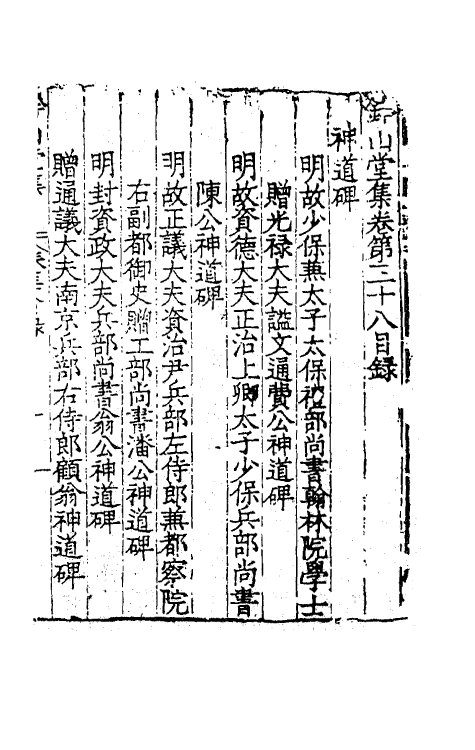 鈐山堂集卷第三十八目録
神道碑
明故少保兼太子太保禮部尚書翰林院學士
贈光禄大夫謚文通費公神道碑
明故資德大夫正治上卿太子少保兵部尚書
陳公神道碑
明故正議大夫資治尹兵部左侍郎兼都察院
右副都御史贈工部尚書潘公神道碑
明封資政大夫兵部尚書翁公神道碑
贈通議大夫南京兵部右侍郎顧翁神道碑